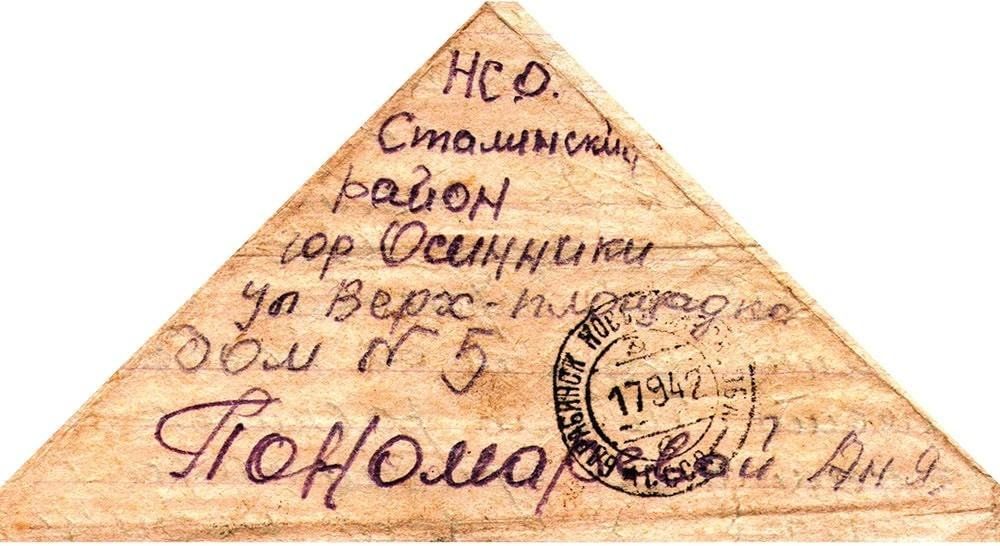 НСО.
Сталинский
район
гор Осинники
ул Верх-площадка
дом № 5
Пономаревой Аня
17942